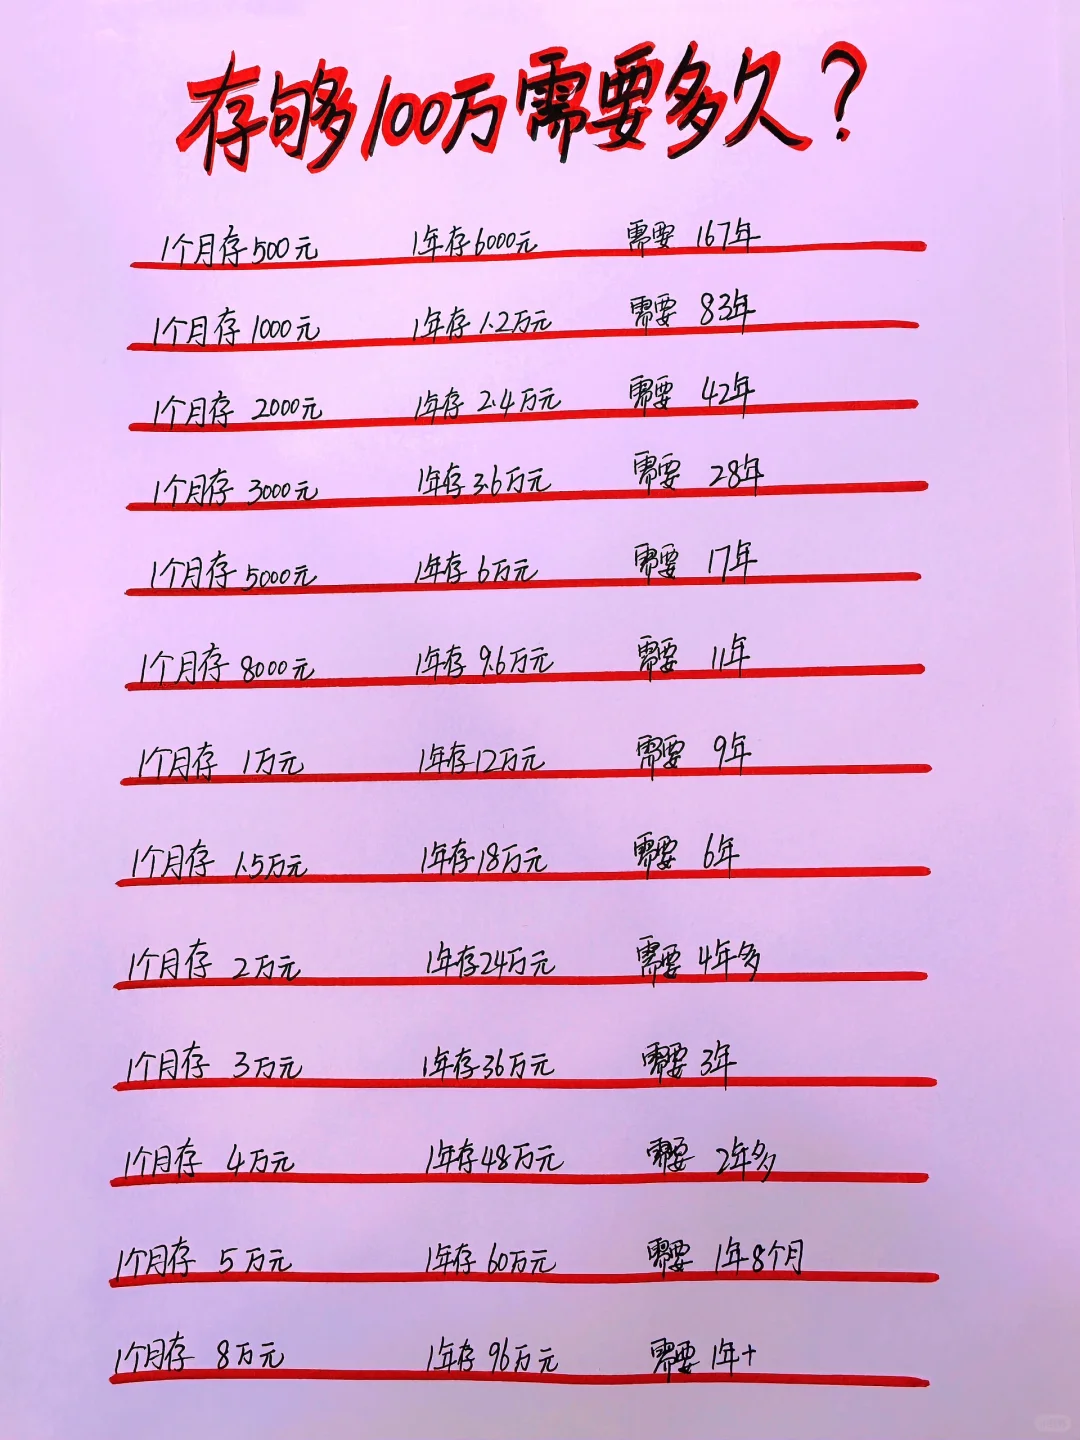 存够100万需要多久？
1个月存500元 1年存6000元 需要 167年
1个月存1000元 1年存1.2万元 需要 83年
1个月存 2000元 1年存 2.4万元 需要 42年
1个月存 3000元 1年存3.6万元 需要 28年
1个月存 5000元 1年存 6万元 需要 17年
1个月存 8000元 1年存 9.6万元 需要 11年
1个月存 1万元 1年存12万元 需要 9年
1个月存 1.5万元 1年存18万元 需要 6年
1个月存 2万元 1年存24万元 需要 4年多
1个月存 3万元 1年存36万元 需要 3年
1个月存 4万元 1年存48万元 需要 2年多
1个月存 5万元 1年存 60万元 需要 1年8个月
1个月存 8万元 1年存 96万元 需要 1年+